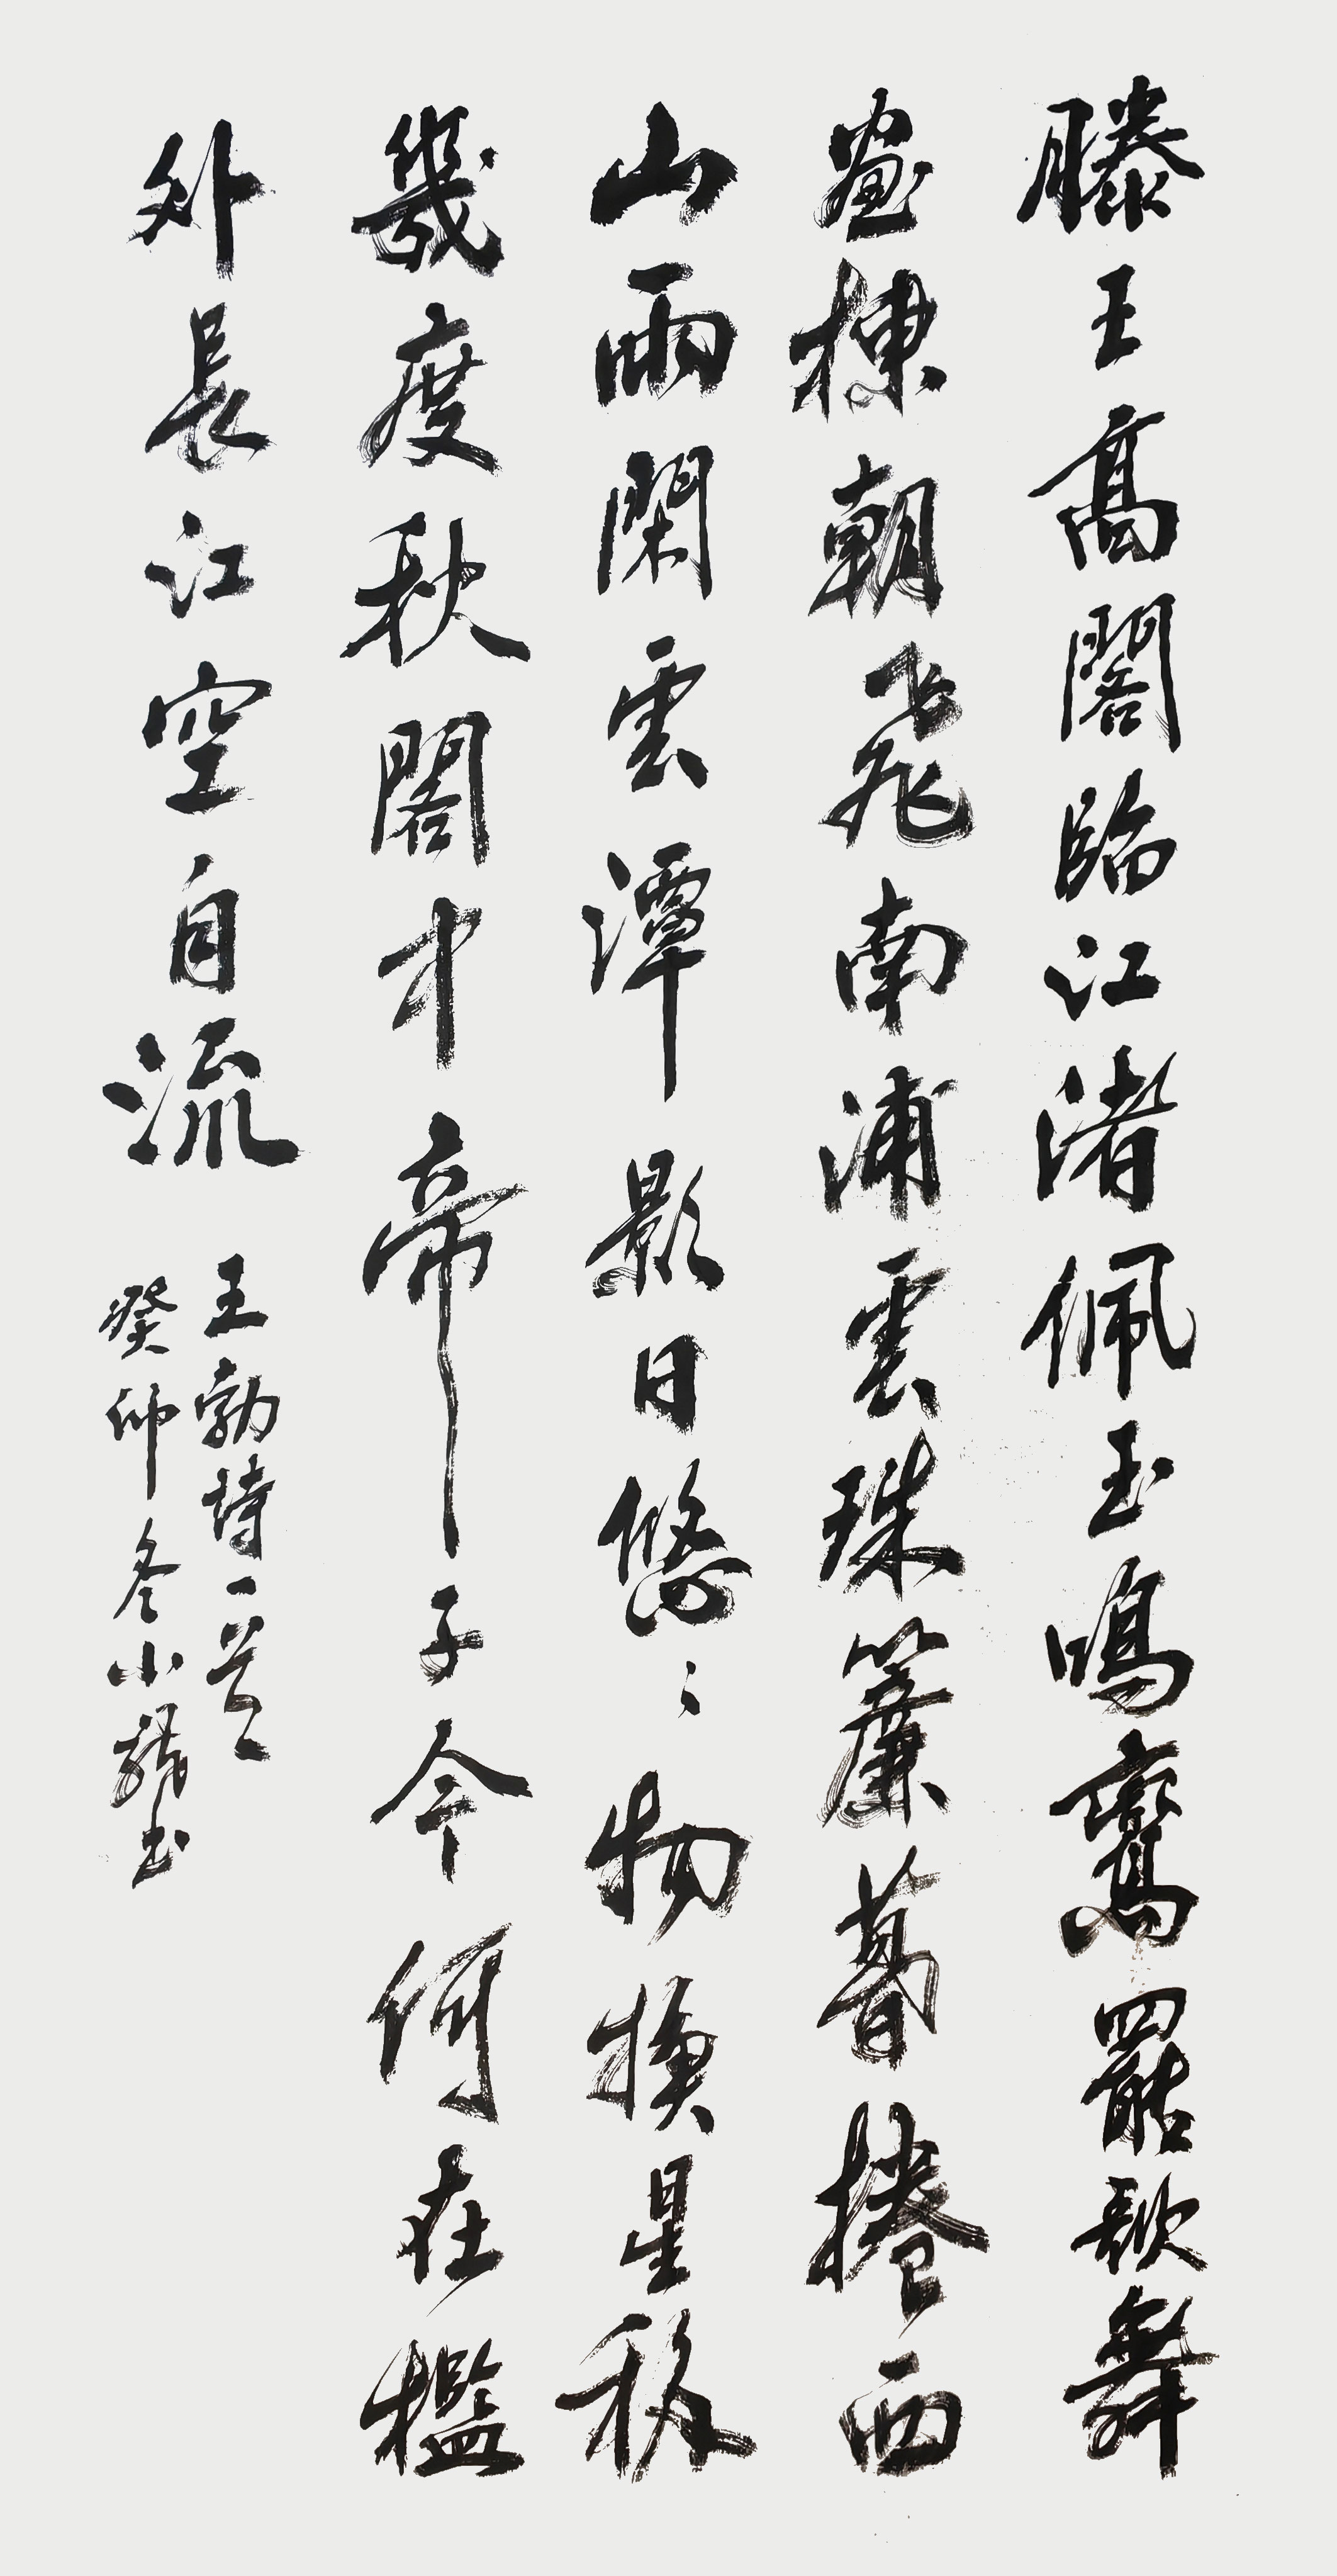 滕王高閣臨江渚佩玉鳴鸞罷歌舞
畫棟朝飛南浦雲珠簾暮捲西
山雨閑雲潭影日悠〻物換星移
幾度秋閣中帝子今何在檻
外長江空自流
王勃詩一首
癸卯冬小龍書